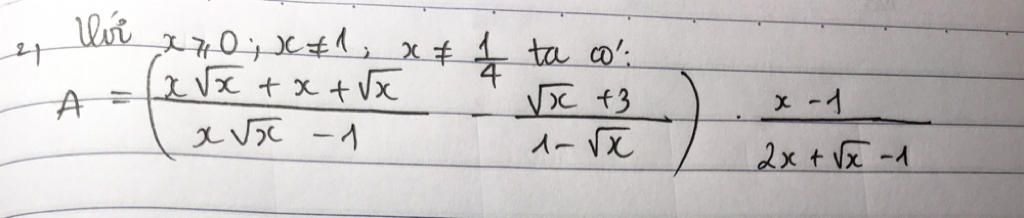 2, Với x ⩾ 0 ; x ≠ 1 ; x ≠ 1/4 ta có:
A = ( (x√x + x + √x)/(x√x - 1) - (√x + 3)/(1 - √x) ) . (x - 1)/(2x + √x - 1)